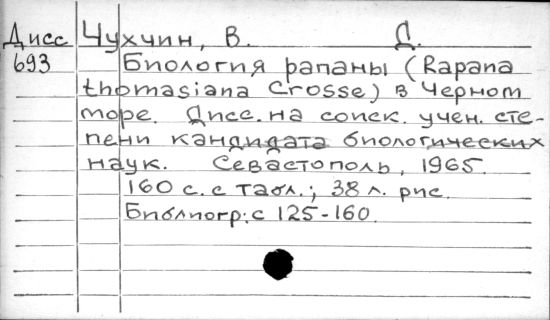 Дисс Чухчин, В. Д.
693 Биология рапаны (Rapana
thomasiana Crosse) в Черном
море. Дисс. на соиск. учен. сте-
пени кандидата биологических
наук. Севастополь, 1965.
160 с. с табл.; 38 л. рис.
Библиогр: с 125-160.